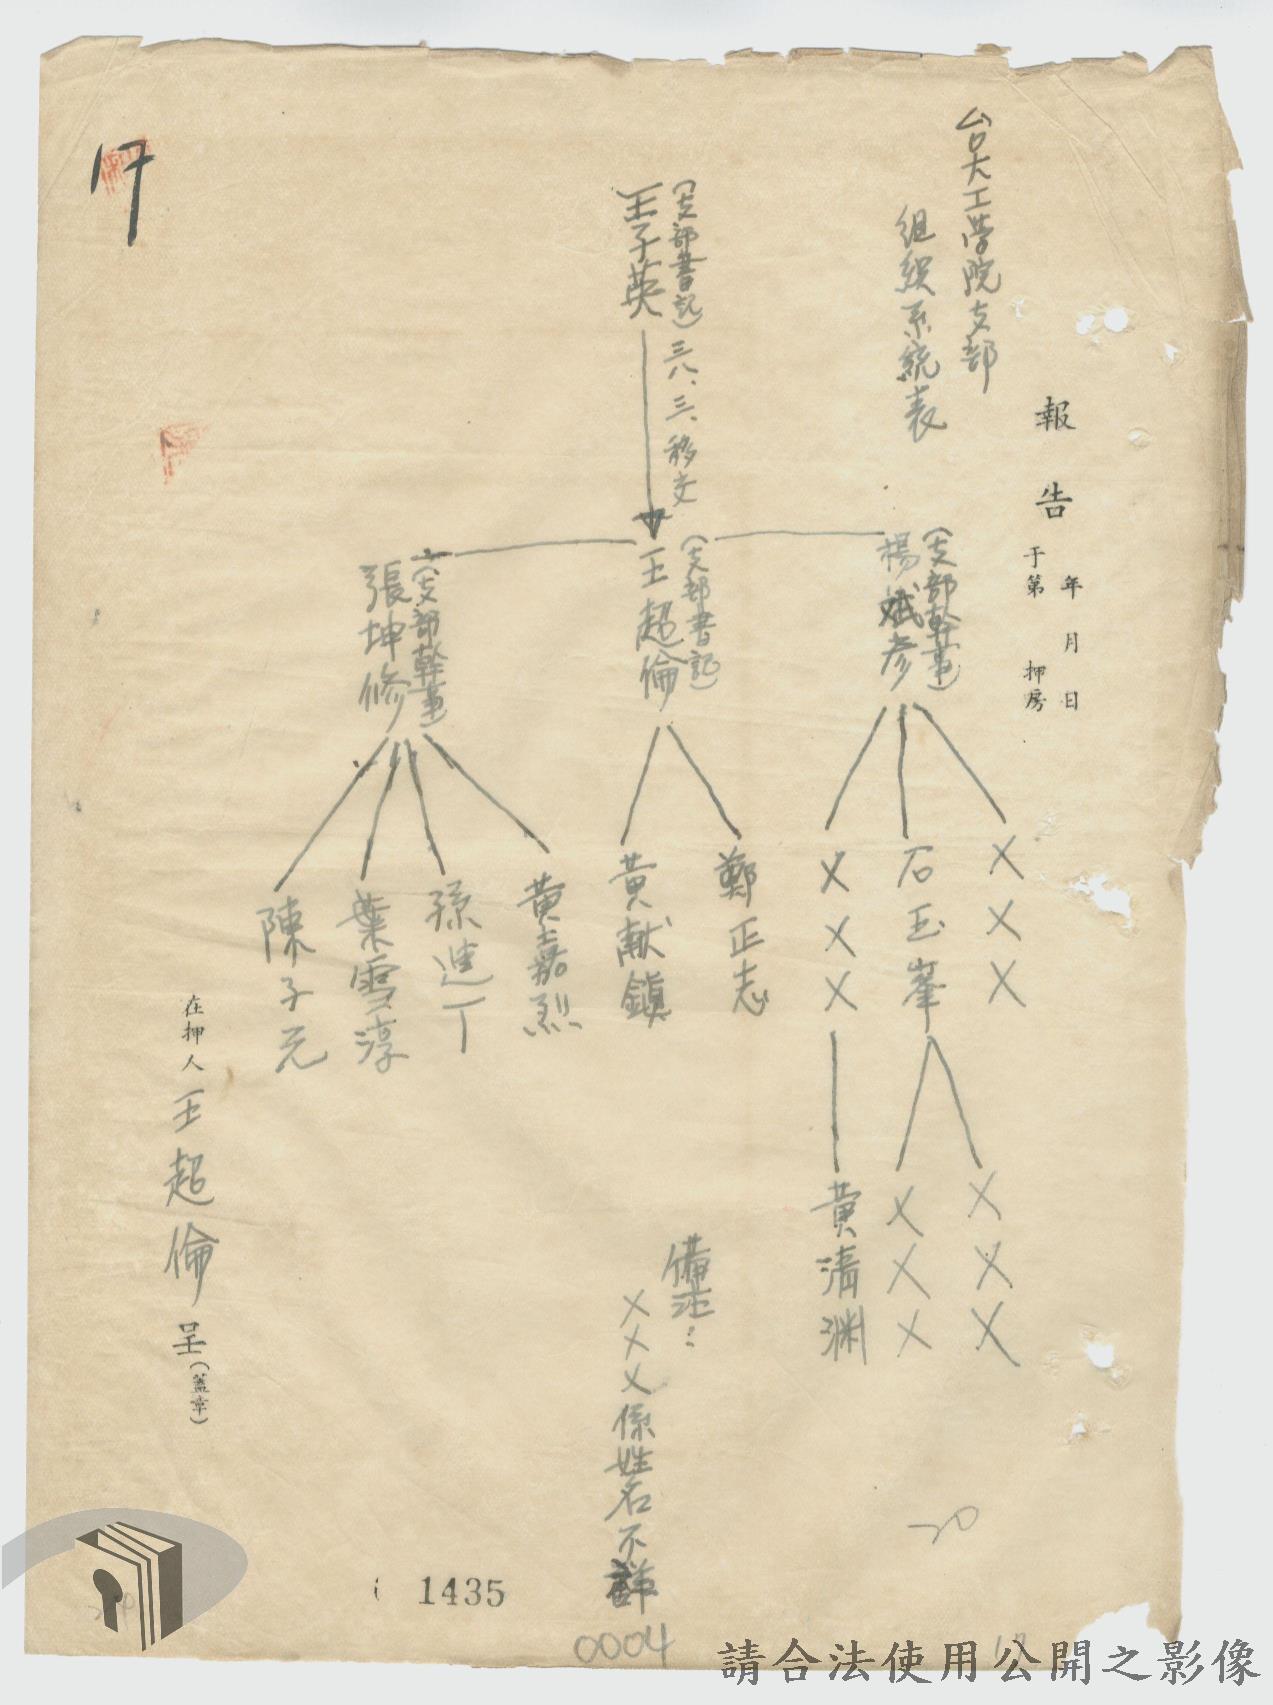 報告
年 月 日
于第 押房
台大工學院支部
組織系統表
(支部書記)三八、三、移交
王子英
(支部幹事)
楊斌彥
(支部書記)
王超倫
(支部幹事)
張坤修
×××
石玉峯
×××
鄭正志
黃献鎮
黃嘉烈
孫進丁
葉雪淳
陳子元
×××
×××
黃清淵
備註：
×××係姓名不詳
在押人 王超倫 呈(蓋章)
17
20
1435
0004
請合法使用公開之影像